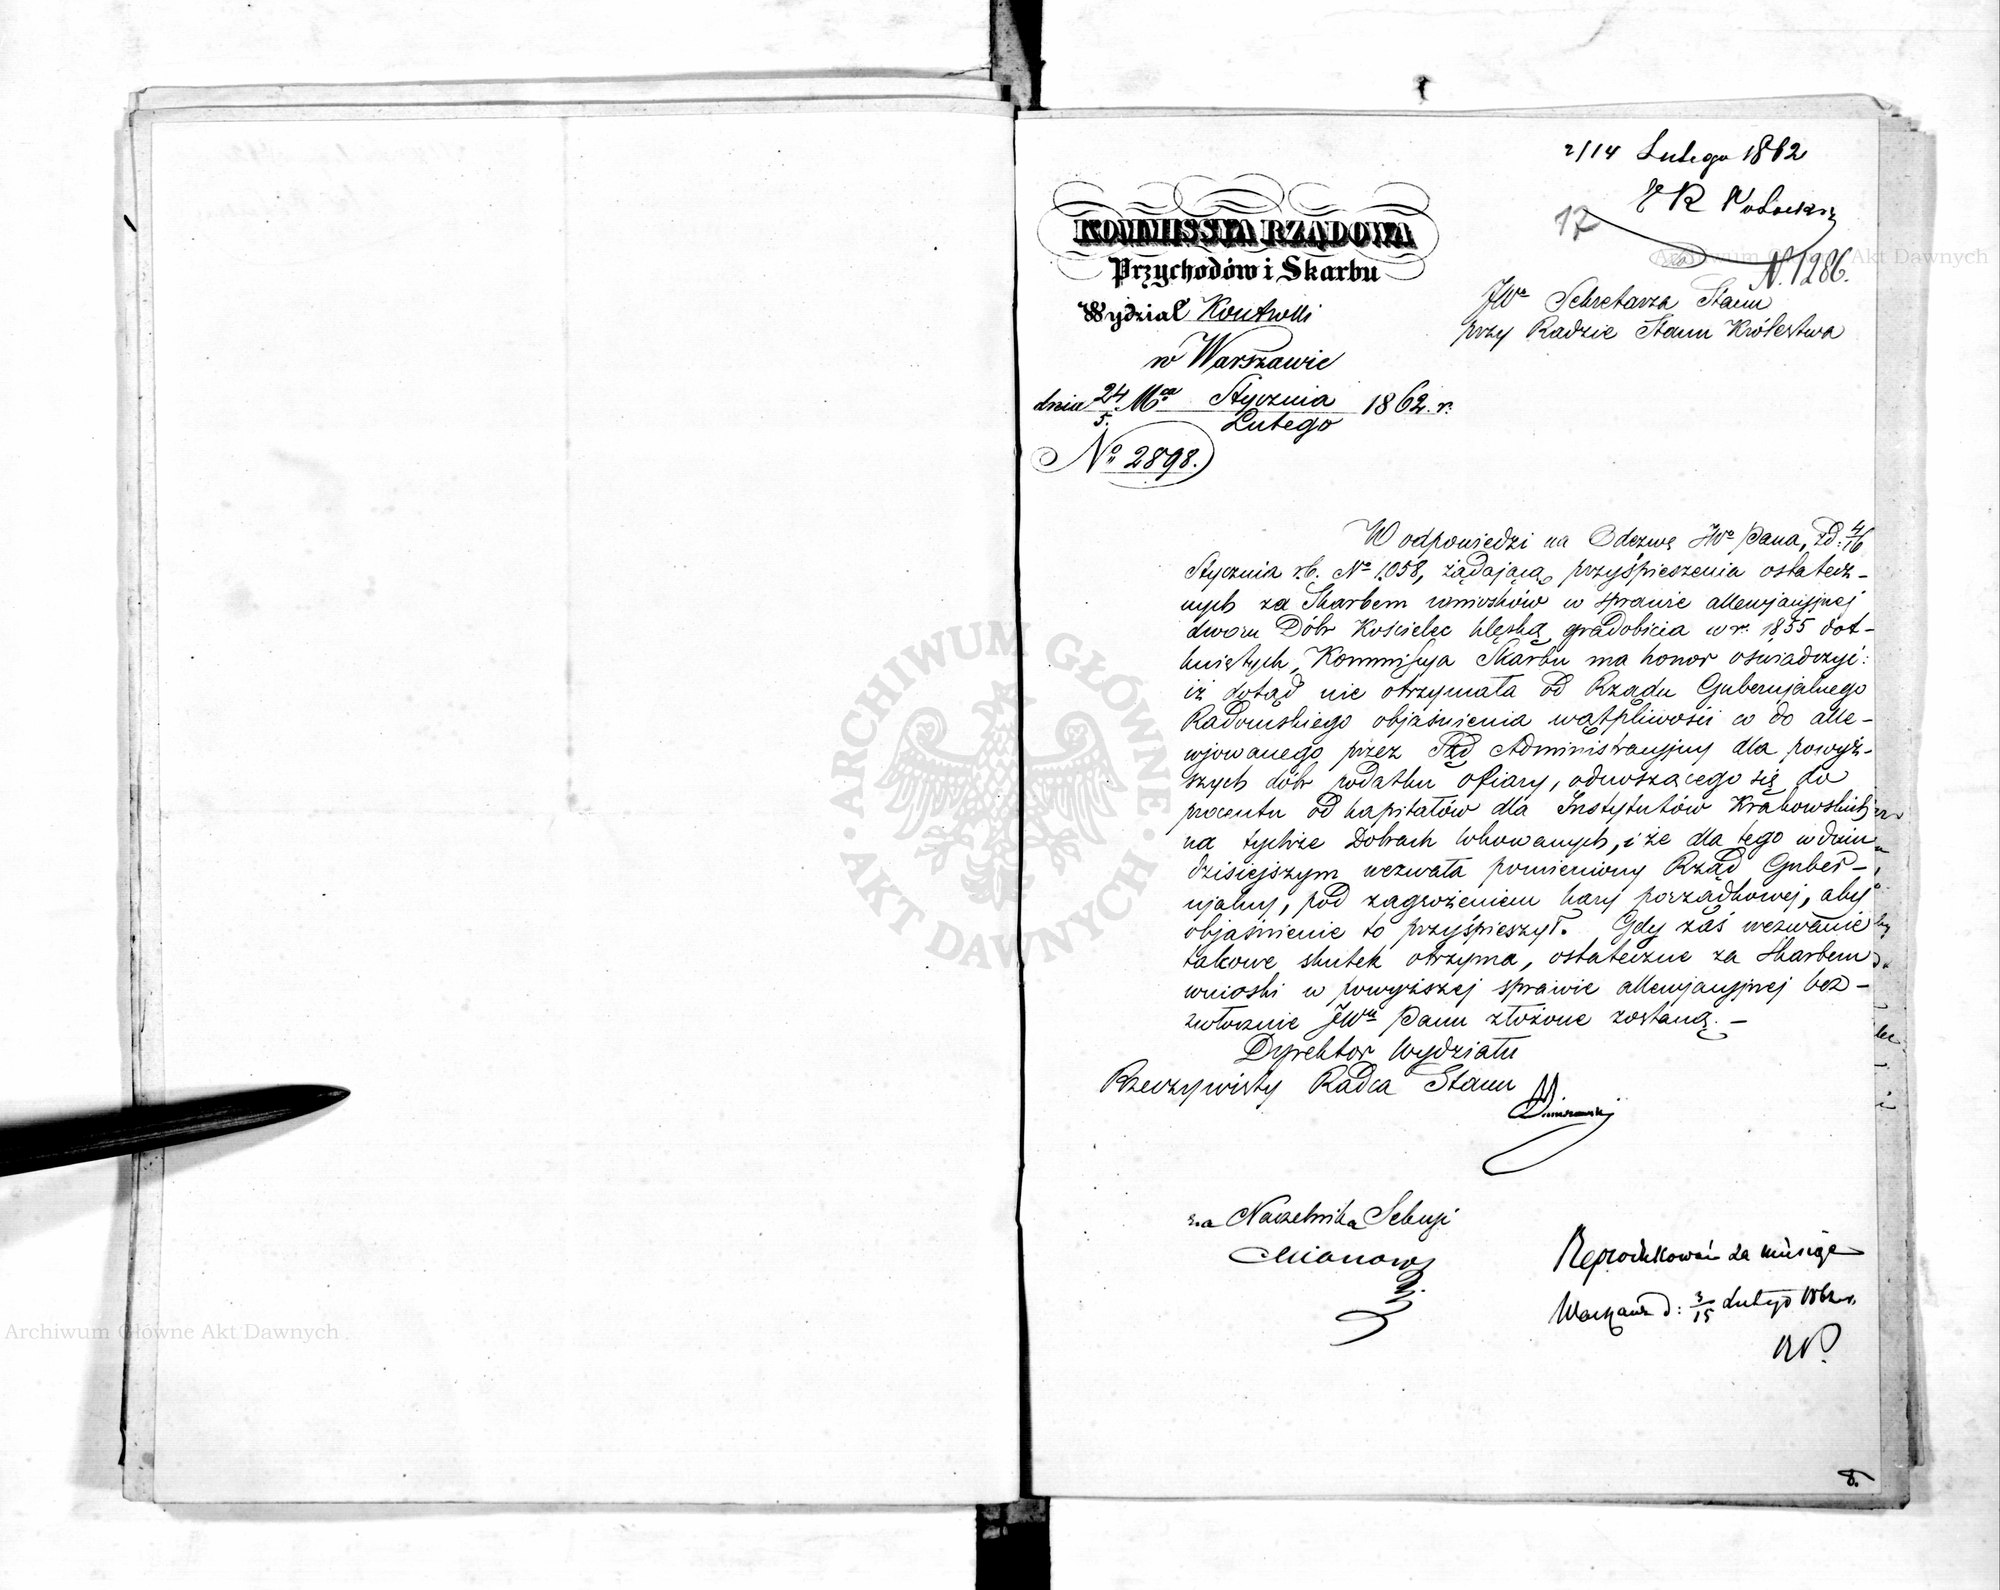 2/14 Lutego 1862
17
N. 1286.
KOMMISSYA RZĄDOWA
Przychodów i Skarbu
Wydział Kontrolli
w Warszawie
dnia 24/5 Mca Stycznia/Lutego 1862 r.
No 2898.
JWo Sekretarza Stanu
przy Radzie Stanu Królestwa
W odpowiedzi na Odezwę JWo Pana, zd: 4/16
Stycznia r.b. No 1058, żądającą przyśpieszenia ostatecz-
nych za Skarbem wniosków w sprawie allewjacyjnej
dworu Dóbr Kościelec klęską gradobicia w r. 1855 dot-
kniętych, Kommissya Skarbu ma honor oświadczyć:
iż dotąd nie otrzymała od Rządu Gubernjalnego
Radomskiego objaśnienia wątpliwości co do alle-
wjowanego przez Sąd Administracyjny dla powyż-
szych dóbr podatku ofiary, odnoszącego się do
procentu od kapitałów dla Instytutów Krakowskich
na tychże Dobrach lokowanych, i że dla tego w dniu
dzisiejszym wezwała pomieniony Rząd Guber-
njalny, pod zagrożeniem kary porządkowej, aby
objaśnienie to przyśpieszył. Gdy zaś wezwanie
takowe skutek otrzyma, ostateczne za Skarbem
wnioski w powyższej sprawie allewjacyjnej bez-
zwłocznie JWu Panu złożone zostaną. -
Dyrektor Wydziału
Rzeczywisty Radca Stanu
za Naczelnika Sekcyi
Reprodukować za miesiąc
Warszawa d: 3/15 Lutego 1862 r.
8.
ARCHIWUM GŁÓWNE
AKT DAWNYCH
Archiwum Główne Akt Dawnych
Archiwum Główne Akt Dawnych